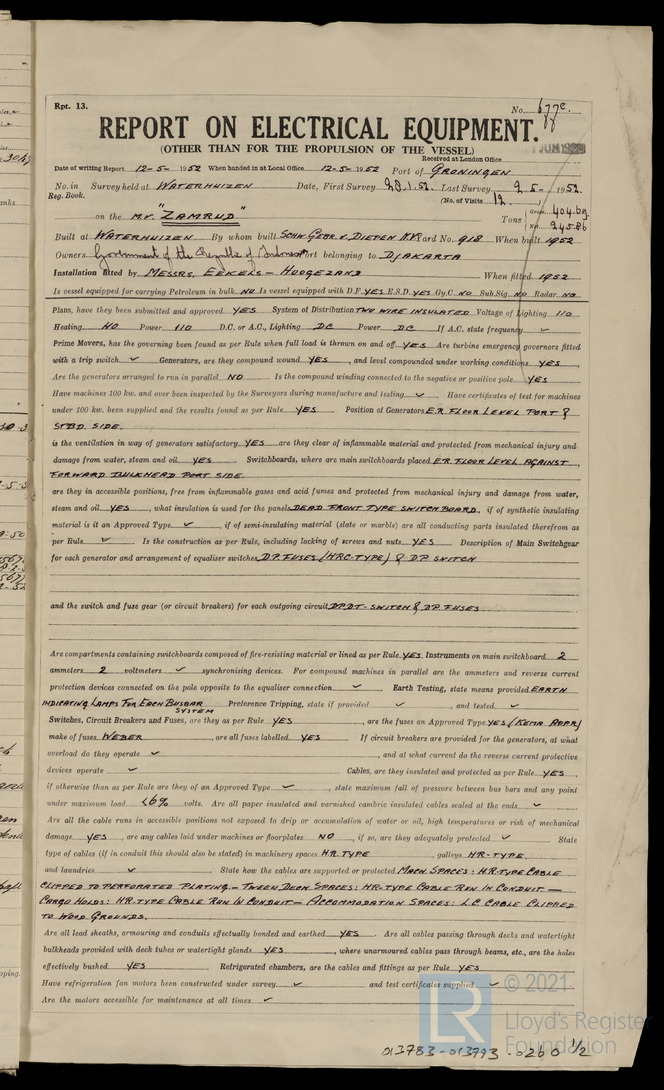 Rpt. 13.
No. 677e.
REPORT ON ELECTRICAL EQUIPMENT.
(OTHER THAN FOR THE PROPULSION OF THE VESSEL)
Received at London Office
Date of writing Report 12-5- 1952 When handed in at Local Office 12-5- 1952 Port of GRONINGEN
No. in Survey held at WATERHUIZEN Date, First Survey 28.1.52. Last Survey 9 5- 1952
Reg. Book. (No. of Visits 12.)
on the M.V. "ZAMRUD" Tons Gross 404.69 Net 245.86
Built at WATERHUIZEN By whom built SCHN. GEBR. v. DIEPEN N.V. Yard No. 918 When built 1952
Owners Government of the Republic of Indonesia Port belonging to DJAKARTA
Installation fitted by MESSRS. EEKELS - HOOGEZAND When fitted 1952
Is vessel equipped for carrying Petroleum in bulk NO Is vessel equipped with D.F. YES E.S.D. YES Gy.C NO Sub.Sig NO Radar NO
Plans, have they been submitted and approved YES System of Distribution TWO WIRE INSULATED Voltage of Lighting 110
Heating NO Power 110 D.C. or A.C., Lighting DC Power DC If A.C. state frequency ✓
Prime Movers, has the governing been found as per Rule when full load is thrown on and off YES Are turbine emergency governors fitted
with a trip switch ✓ Generators, are they compound wound YES, and level compounded under working conditions YES,
Are the generators arranged to run in parallel NO Is the compound winding connected to the negative or positive pole YES
Have machines 100 kw. and over been inspected by the Surveyors during manufacture and testing ✓ Have certificates of test for machines
under 100 kw. been supplied and the results found as per Rule YES. Position of Generators E.R. FLOOR LEVEL PORT &
STBD. SIDE.
is the ventilation in way of generators satisfactory YES are they clear of inflammable material and protected from mechanical injury and
damage from water, steam and oil YES. Switchboards, where are main switchboards placed E.R. FLOOR LEVEL AGAINST
FORWARD BULKHEAD PORT SIDE.
are they in accessible positions, free from inflammable gases and acid fumes and protected from mechanical injury and damage from water,
steam and oil YES, what insulation is used for the panels DEAD FRONT TYPE SWITCHBOARD, if of synthetic insulating
material is it an Approved Type ✓, if of semi-insulating material (slate or marble) are all conducting parts insulated therefrom as
per Rule ✓ Is the construction as per Rule, including locking of screws and nuts YES. Description of Main Switchgear
for each generator and arrangement of equaliser switches D.P. FUSES (HRC-TYPE) & D.P. SWITCH
and the switch and fuse gear (or circuit breakers) for each outgoing circuit DPDT- SWITCH & D.P. FUSES
Are compartments containing switchboards composed of fire-resisting material or lined as per Rule YES Instruments on main switchboard 2
ammeters 2 voltmeters ✓ synchronising devices. For compound machines in parallel are the ammeters and reverse current
protection devices connected on the pole opposite to the equaliser connection ✓ Earth Testing, state means provided EARTH
INDICATING LAMPS FOR EACH BUSBAR SYSTEM Preference Tripping, state if provided ✓, and tested ✓
Switches, Circuit Breakers and Fuses, are they as per Rule YES, are the fuses an Approved Type YES (KEMA APPR)
make of fuses WEBER, are all fuses labelled YES If circuit breakers are provided for the generators, at what
overload do they operate ✓, and at what current do the reverse current protective
devices operate ✓ Cables, are they insulated and protected as per Rule YES,
if otherwise than as per Rule are they of an Approved Type ✓, state maximum fall of pressure between bus bars and any point
under maximum load <6% volts. Are all paper insulated and varnished cambric insulated cables sealed at the ends ✓
Are all the cable runs in accessible positions not exposed to drip or accumulation of water or oil, high temperatures or risk of mechanical
damage YES, are any cables laid under machines or floorplates NO, if so, are they adequately protected ✓ State
type of cables (if in conduit this should also be stated) in machinery spaces H.R. TYPE, galleys HR-TYPE,
and laundries ✓ State how the cables are supported or protected MACH SPACES: H.R. TYPE CABLE
CLIPPED TO PERFORATED PLATING. - TWEEN DECK SPACES: HR-TYPE CABLE RUN IN CONDUIT. —
CARGO HOLDS: HR.TYPE CABLE RUN IN CONDUIT - ACCOMMODATION SPACES: L.C. CABLE CLIPPED
TO WOOD GROUNDS.
Are all lead sheaths, armouring and conduits effectually bonded and earthed YES. Are all cables passing through decks and watertight
bulkheads provided with deck tubes or watertight glands YES, where unarmoured cables pass through beams, etc., are the holes
effectively bushed YES Refrigerated chambers, are the cables and fittings as per Rule YES
Have refrigeration fan motors been constructed under survey ✓ and test certificates supplied ✓
Are the motors accessible for maintenance at all times ✓
© 2021
Lloyd's Register
Foundation
013783-013793-0260 1/2